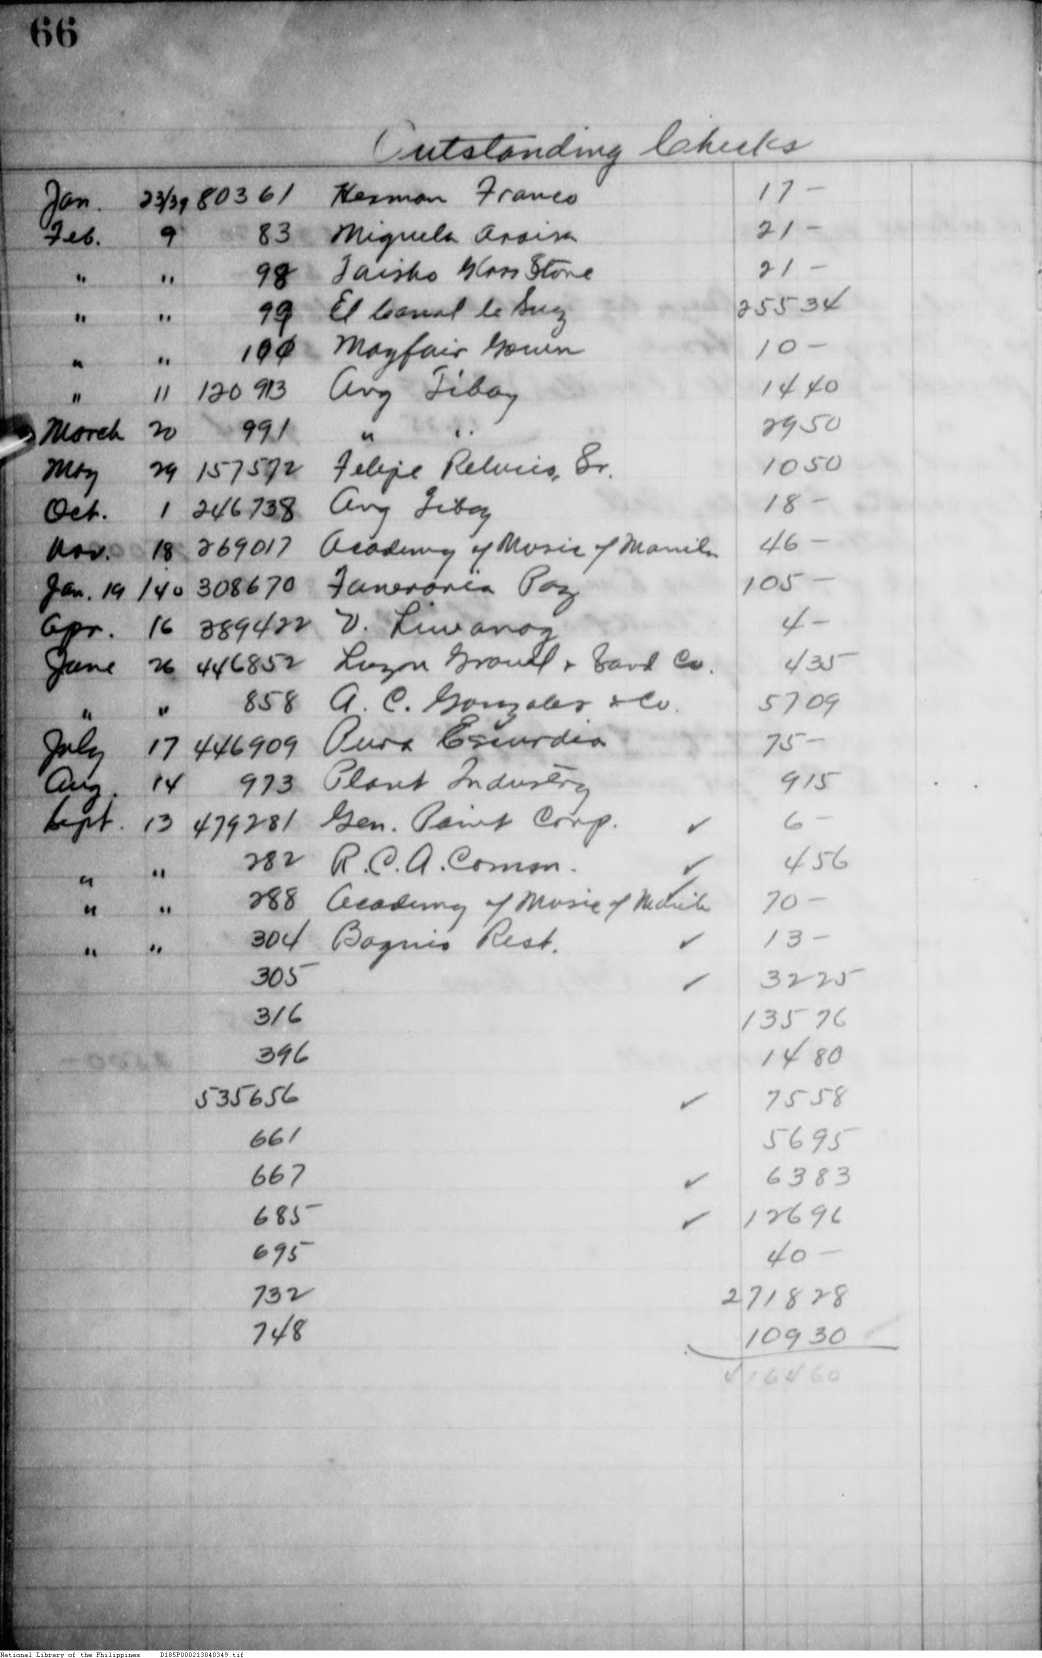 66
Outstanding Checks
Jan. 23/39 80361 Herman Franco 17 -
Feb. 9 83 Miguela 21 -
" " 98 Taisho Glass Store 21 -
" " 99 El Canal de Suez 255 34
" " 100 Mayfair Gown 10 -
" 11 120 913 Aug Tibay 14 40
March 20 991 " " 29 50
May 29 157572 Felipe Sr. 10 50
Oct. 1 246738 Aug Tibay 18 -
Nov. 18 269017 Academy of Music of Manila 46 -
Jan. 19/40 308670 Funeraria Paz 105 -
Apr. 16 389422 V. Liwanag 4 -
June 26 446852 Luzon Gravel & Sand Co. 4 35
" " 858 A. C. Gonzales & Co. 57 09
July 17 446909 Pura Escurdia 75 -
Aug. 14 973 Plant Industry 9 15
Sept. 13 479281 Gen. Paint Corp. ✓ 6 -
" " 282 R.C.A. Comm. ✓ 4 56
" " 288 Academy of Music of Manila ✓ 70 -
" " 304 Baguio Rest. ✓ 13 -
305 ✓ 32 25
316 135 76
396 14 80
535656 ✓ 75 58
661 56 95
667 ✓ 63 83
685 ✓ 126 96
695 40 -
732 2718 28
748 109 30
4164 60
National Library of the Philippines D185P000213040349.tif